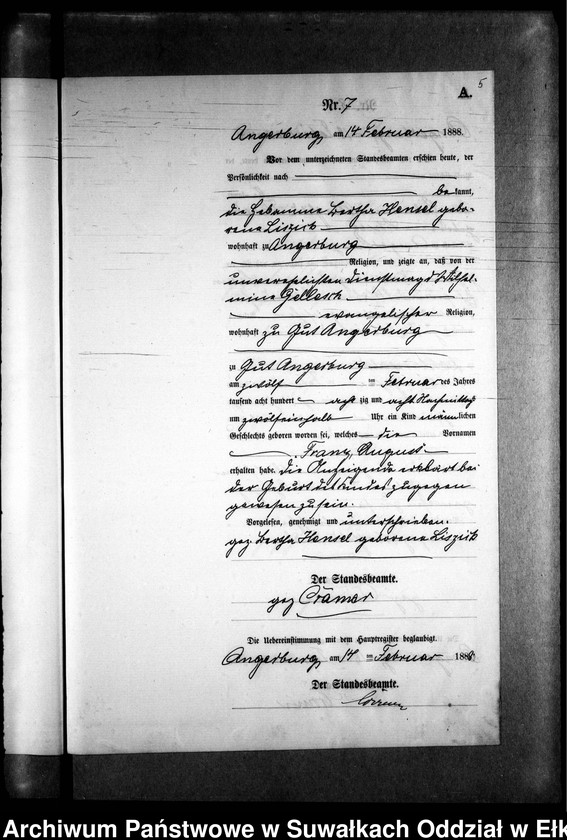 5
A.
Nr. 7
Angerburg, am 14 Februar 1888.
Vor dem unterzeichneten Standesbeamten erschien heute, der
Persönlichkeit nach
bekannt,
die Hebamme Bertha Hensel gebo-
rene Liszick
wohnhaft zu Angerburg
Religion, und zeigte an, daß von der
unverehelichten Dienstmagd Wilhel-
mine Gellesch
evangelischer Religion,
wohnhaft zu Gut Angerburg
zu Gut Angerburg
am zwölf ten Februar des Jahres
tausend acht hundert acht zig und acht Nachmittag
um zwölfeinhalb Uhr ein Kind männlichen
Geschlechts geboren worden sei, welches die Vornamen
Franz August
erhalten habe. Die Anzeigende erklärt bei
der Geburt des Kindes zugegen
gewesen zu sein.
Vorgelesen, genehmigt und unterschrieben.
gez. Bertha Hensel geborene Liszick
Der Standesbeamte.
gez Crämer
Die Uebereinstimmung mit dem Hauptregister beglaubigt.
Angerburg, am 14 ten Februar 1888
Der Standesbeamte.
Archiwum Państwowe w Suwałkach Oddział w Ełk